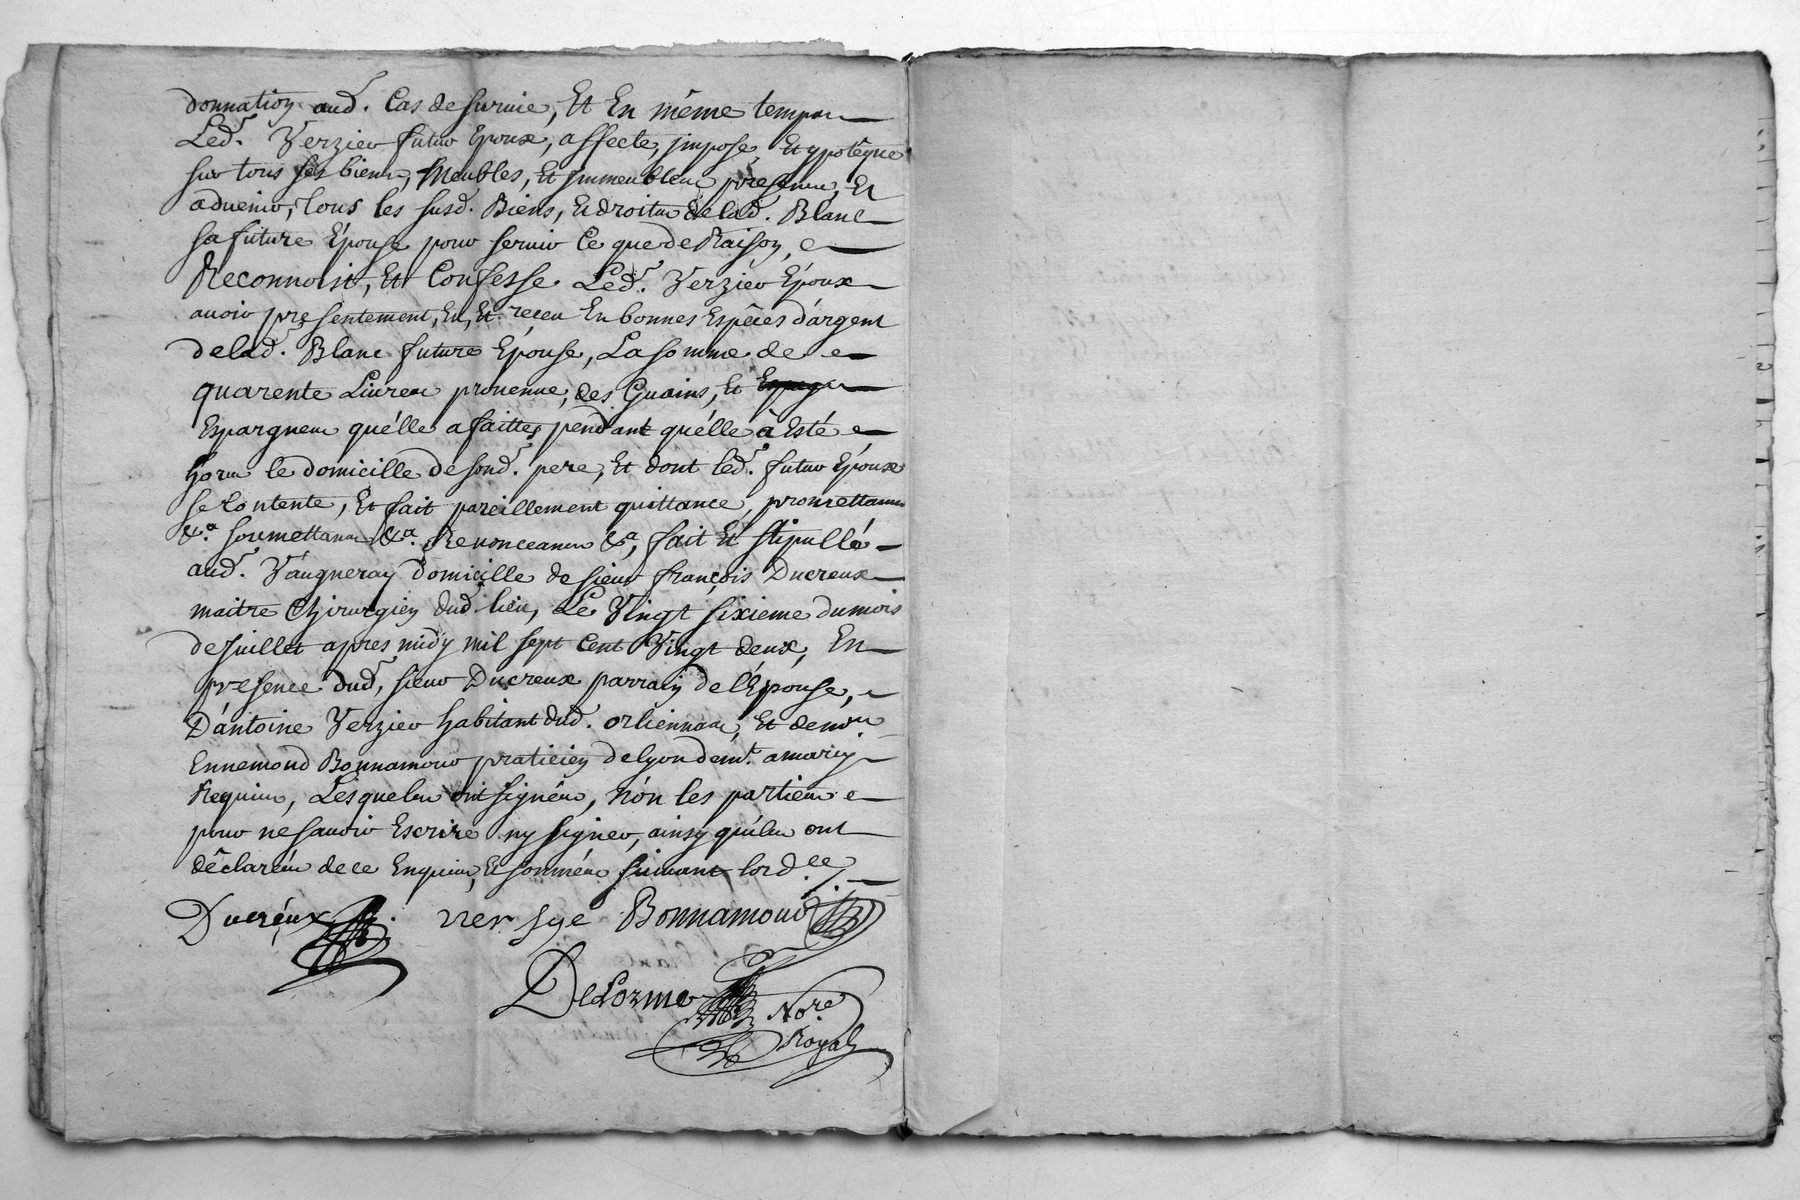 donnation aud. Cas de survie, Et En même temps
Led. Verzieu futur Epoux, affecte, jmpose, Et ypotêque
sur tous ses biens, Meubles, Et jmmeubles presens, Et
advenir, tous les susd. Biens, Et droits de lad. Blanc
sa future Épouse pour servir Ce que de Raison,
Reconnoist, Et Confesse Led. Verzieu Époux
avoir presentement, Eu, Et reçeu En bonnes Espêces d'argent
de lad. Blanc future Épouse, La somme de
quarente Livres provenue, des Guains, Et
Espargnes qu'élle a faittes pendant qu'élle à Esté
hors le domicille de sond. pere, Et dont led. futur Époux
se Contente, Et fait pareillement quittance, promettans
&a. soumettans &a. Renonceans &a, fait Et stipullé
aud. Vaugneray domicille de sieur françois Ducreux
maitre Chirurgien dud. lieu, Le Vingt sixieme du mois
de Juillet apres midy mil sept Cent Vingt deux, En
presence dud. sieur Ducreux parrain de l'Épouse,
D'antoine Verzieu habitant dud. orliennas, Et de
Ennemond Bonnamour praticien de lyon demt. a
Requis, Lesquels ont signés, Nón les parties
pour ne sçavoir Escrire ny signer, ainsy qu'ils ont
déclarés de ce Enquis, Et sommés suivant lord.ce
Ducréux ver sye Bonnamour
DeLorme Nore
Royal